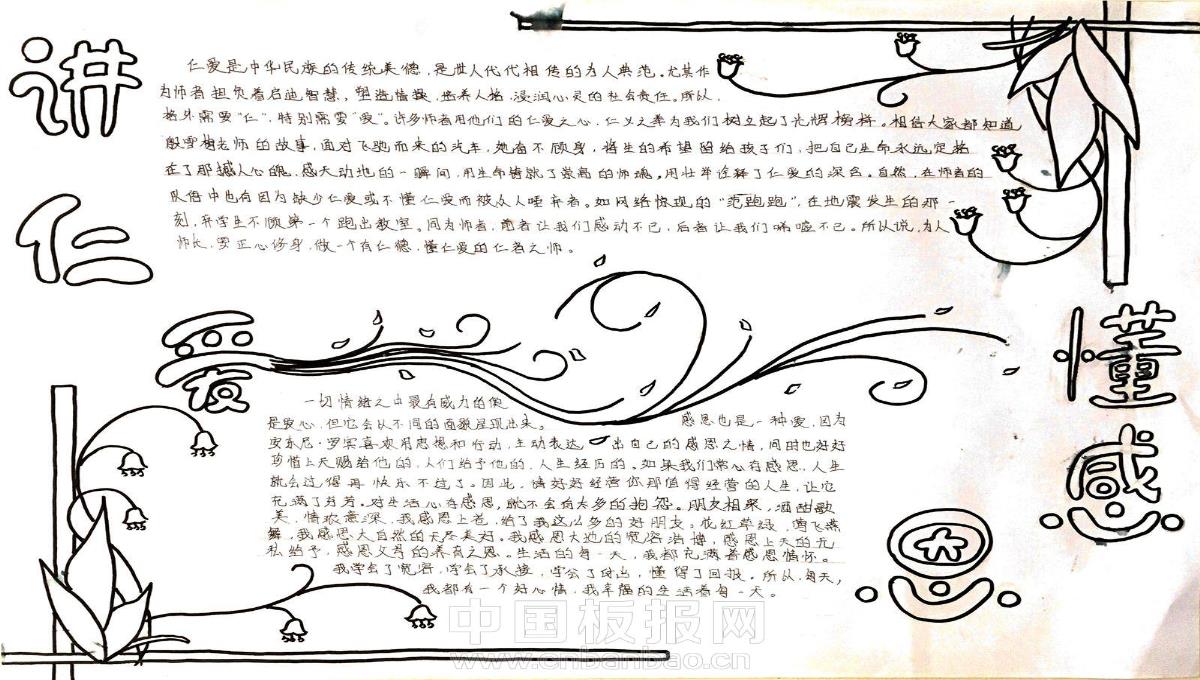 讲仁爱
懂感恩
仁爱是中华民族的传统美德，是世人代代相传的为人典范。尤其作
为师者担负着启迪智慧，塑造情操，培养人格，浸润心灵的社会责任。所以，
格外需要“仁”，特别需要“爱”。许多师者用他们的仁爱之心，仁义之举为我们树立起了光辉榜样。相信大家都知道
殷雪梅老师的故事，面对飞驰而来的汽车，她奋不顾身，将生的希望留给孩子们，把自己生命永远定格
在了那撼人心魄，感天动地的一瞬间，用生命铸就了崇高的师魂。用壮举诠释了仁爱的深含。自然，在师者的
队伍中也有因为缺少仁爱或不懂仁爱而被众人唾弃者。如网络惊现的“范跑跑”，在地震发生的那一
刻，弃学生不顾第一个跑出教室。同为师者，前者让我们感动不已，后者让我们唏嘘不已。所以说，为人
师长，要正心修身，做一个有仁德，懂仁爱的仁者之师。
一切情绪之中最有威力的便
是爱心，但它会从不同的面貌呈现出来。感恩也是一种爱，因为
安东尼·罗宾喜欢用思想和行动，主动表达出自己的感恩之情，同时也好好
珍惜上天赐给他的，人们给予他的，人生经历的。如果我们常心存感恩，人生
就会过得再快乐不过了。因此，请好好经营你那值得经营的人生，让它
充满了芬芳。对生活心存感恩，就不会有太多的抱怨。朋友相聚，酒甜歌
美，情浓意深，我感恩上苍，给了我这么多的好朋友。花红草绿，莺飞燕
舞，我感恩大自然的无尽美好。我感恩大地的宽容浩博，感恩上天的无
私给予，感恩父母的养育之恩。生活的每一天，我都充满着感恩情怀。
我学会了宽容，学会了承接，学会了付出，懂得了回报。所以，每天，
我都有一个好心情，我幸福的生活着每一天。
中国板报网
www.cnbanbao.cn